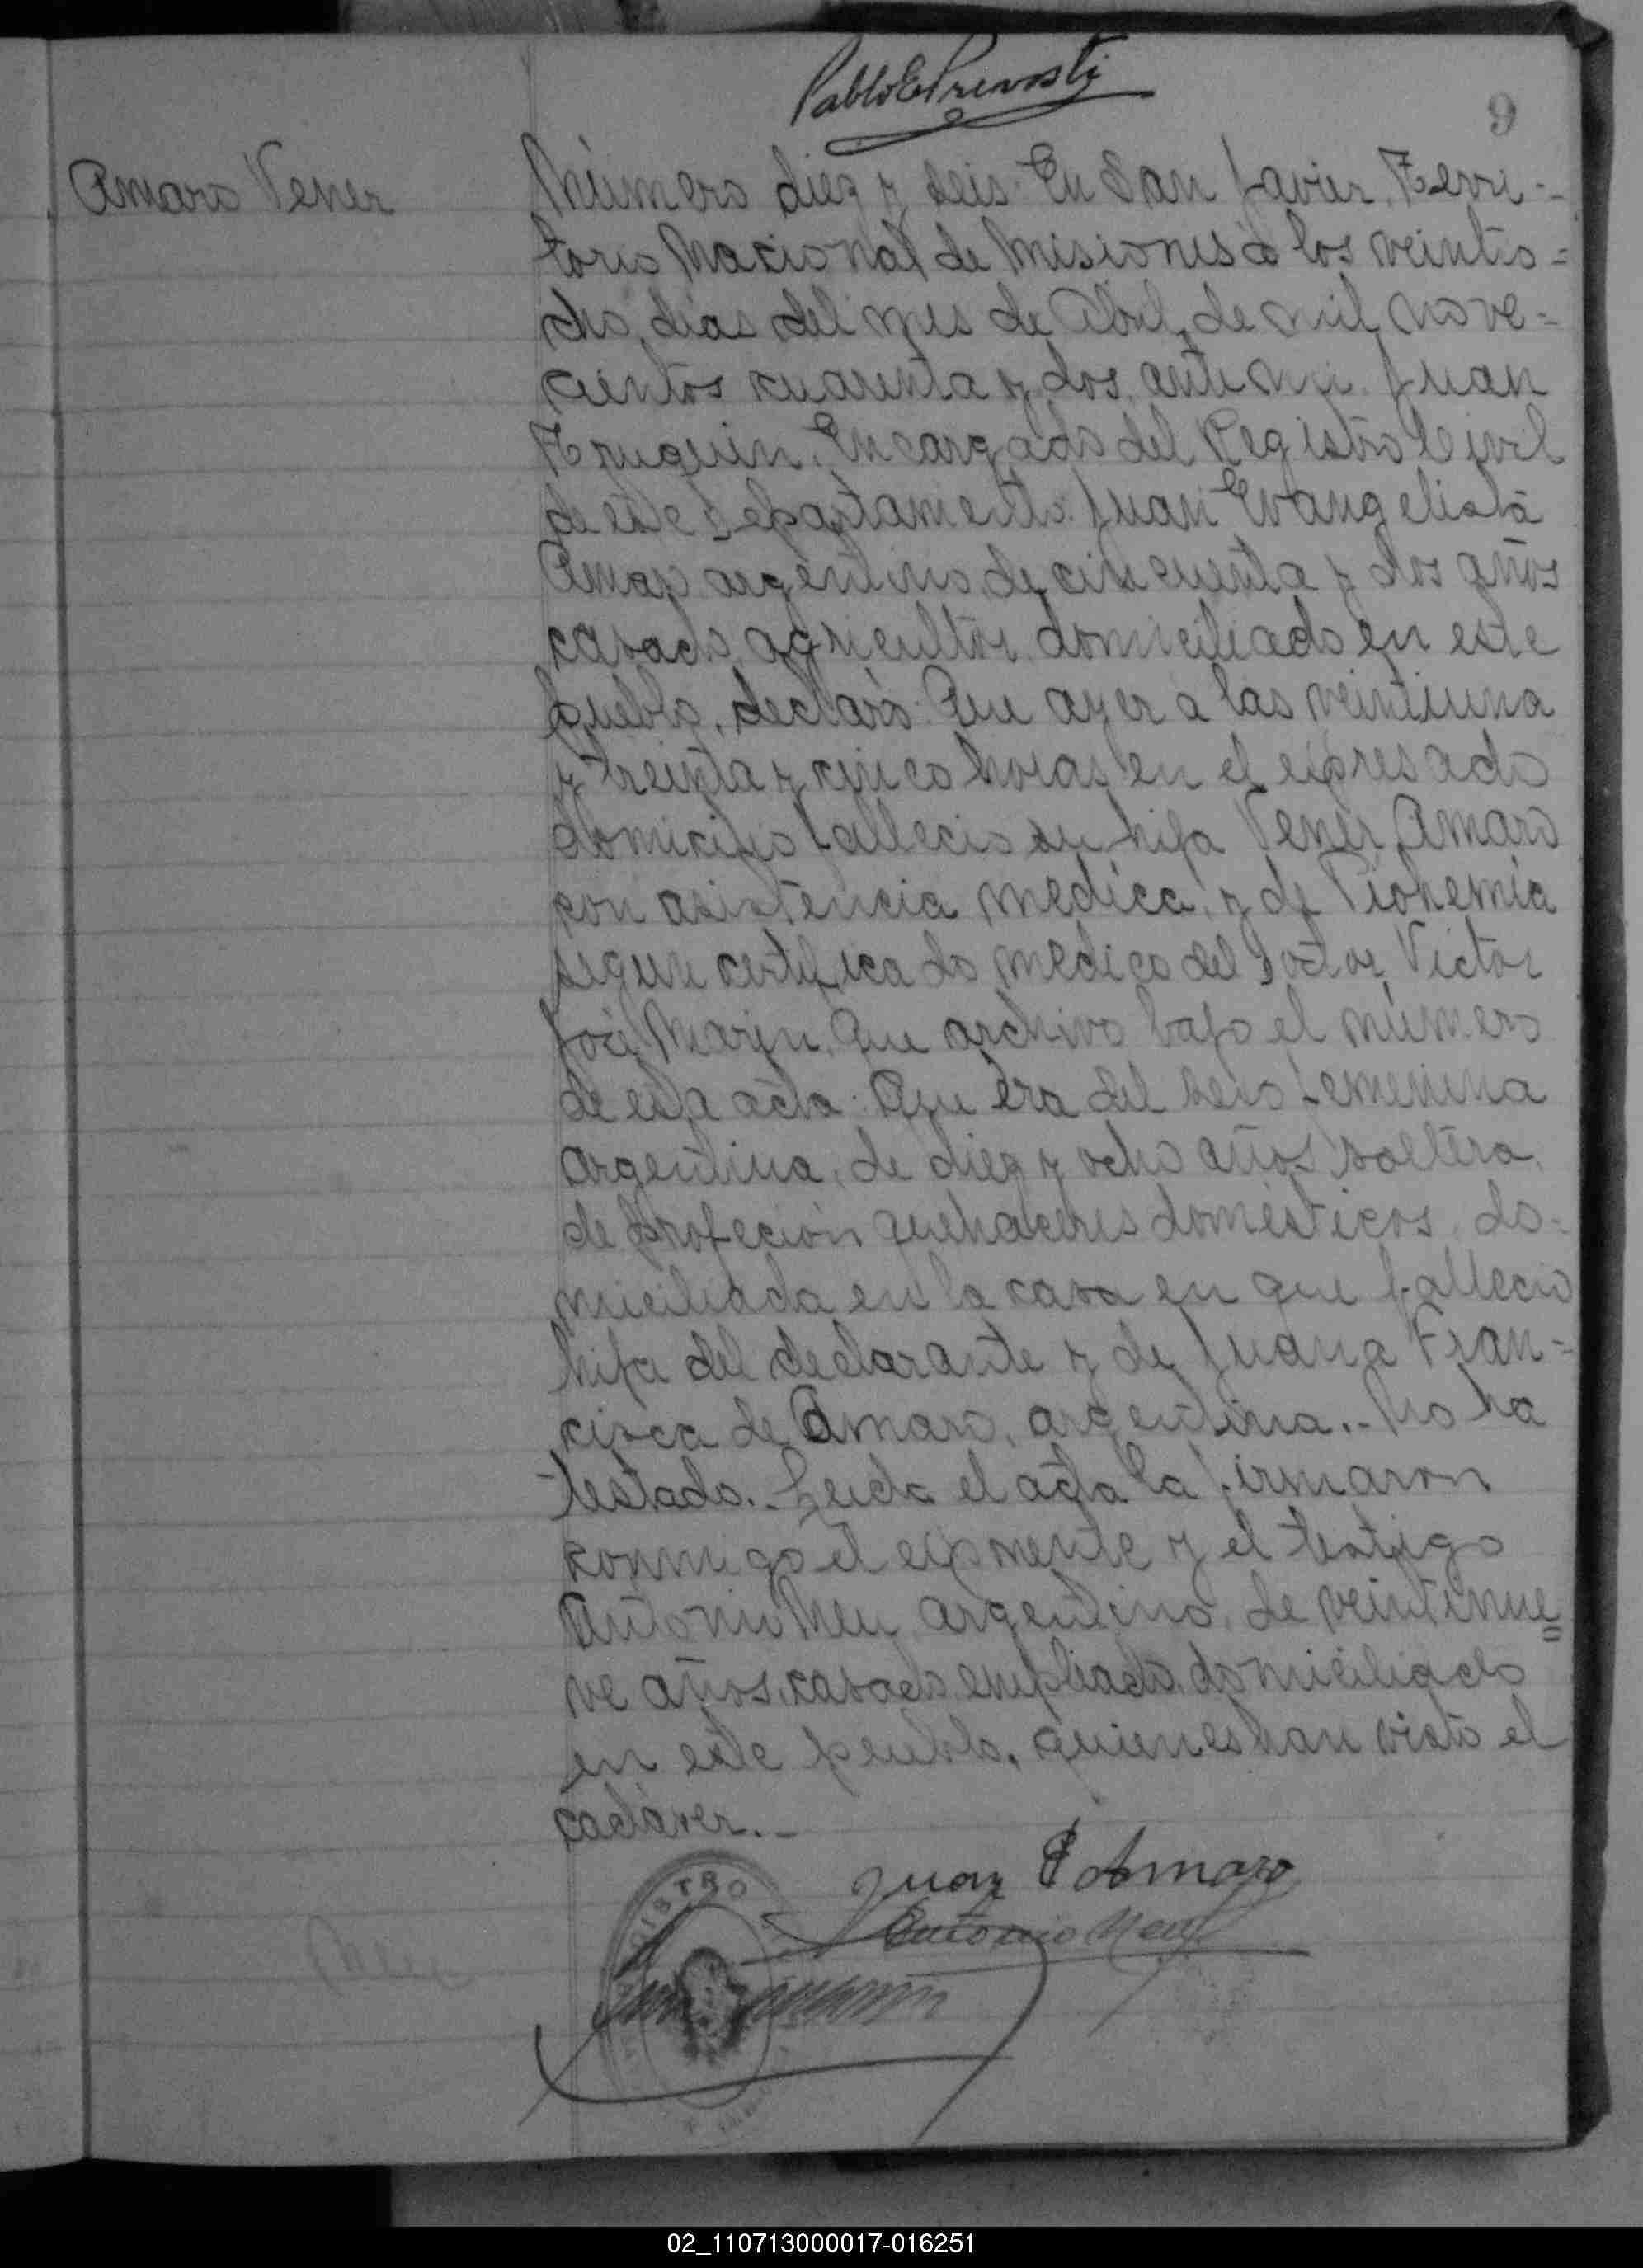 Pablo E Prevosti
9
Amaro Vener
Número diez y seis. En San Javier, Terri-
torio Nacional de Misiones a los veintio=
cho, dias del mes de Abril, de mil nove=
cientos cuarenta y dos, ante mi Juan
Encargado del Registro Civil
de este Departamento: Juan Evangelista
Amaro argentino, de cincuenta y dos años
casado, agricultor, domiciliado en este
pueblo, declaró: Que ayer a las veintiuna
y treinta y cinco horas en el expresado
domicilio fallecio su hija Vener Amaro
con asistencia medica, y de Piohemia
segun certificado medico del Doctor Victor
José Marin, Que archivo bajo el número
de esta acta: Que era del sexo femenina
argentina, de diez y ocho años, soltera,
de profeción quehaceres domésticos, do=
miciliada en la casa en que fallecio
hija del declarante y de Juana Fran=
cisca de Amaro, argentina.- No ha
testado.- Leida el acta la firmaron
conmigo el exponente y el testigo
Antonio Neu, argentino, de veintinue
ve años, casado, empleado, domiciliado
en este pueblo, quienes han visto el
cadáver.-
Juan E Amaro
Antonio Neu
REGISTRO
02_110713000017-016251